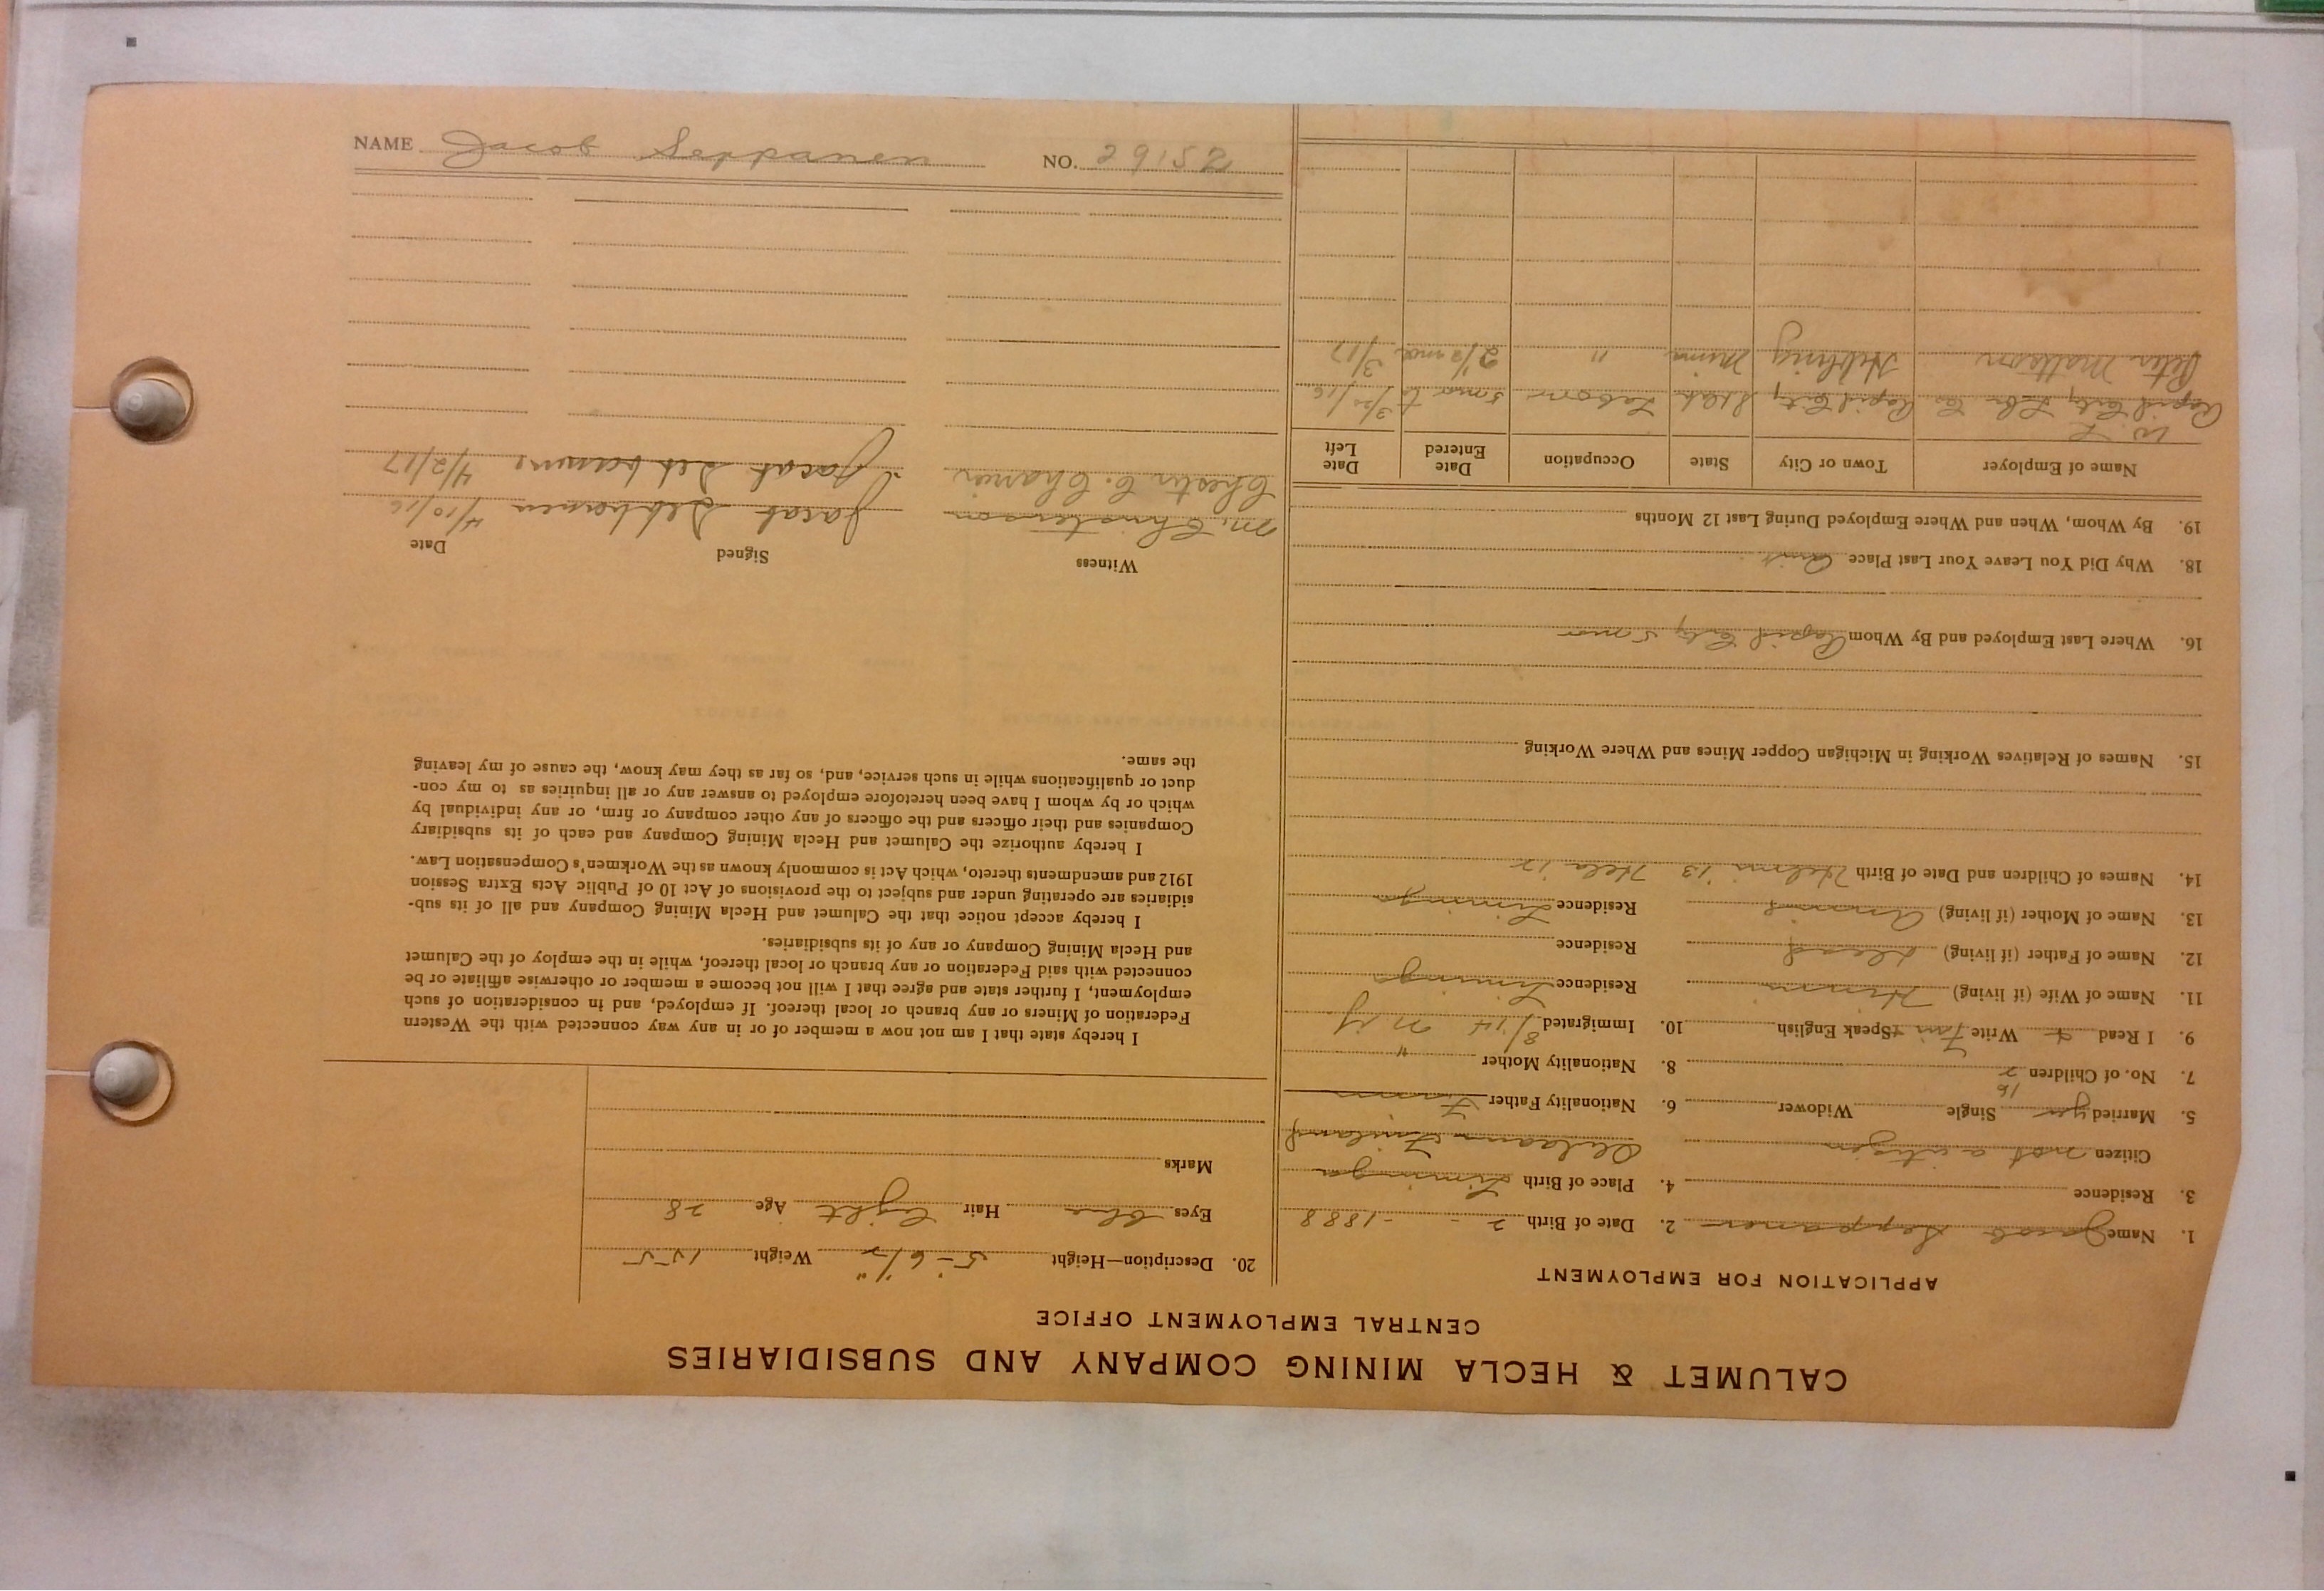 NAME Jacob Seppanen NO. 29152
CALUMET & HECLA MINING COMPANY AND SUBSIDIARIES
CENTRAL EMPLOYMENT OFFICE
APPLICATION FOR EMPLOYMENT
1. Name Jacob Seppanen 2. Date of Birth 2 - - 1888
3. Residence 4. Place of Birth Liminga
Citizen not a citizen Finland
5. Married yes Single Widower 6. Nationality Father
7. No. of Children 2 8. Nationality Mother "
9. I Read Write Speak English 10. Immigrated 8/14 N Y
11. Name of Wife (if living) Residence Liminga
12. Name of Father (if living) dead Residence
13. Name of Mother (if living) Residence Liminga
14. Names of Children and Date of Birth '13 '12
15. Names of Relatives Working in Michigan Copper Mines and Where Working
16. Where Last Employed and By Whom Rapid City 5 mos
18. Why Did You Leave Your Last Place Quit
19. By Whom, When and Where Employed During Last 12 Months
Name of Employer Town or City State Occupation Date Entered Date Left
Rapid City Lbr Co Rapid City Laborer 5 mos to 3/20/16
Peter Mattson Hibbing Minn " 2 1/2 mos 3/17
20. Description—Height 5-6 1/2" Weight 155
Eyes blue Hair Light Age 28
Marks
I hereby state that I am not now a member of or in any way connected with the Western
Federation of Miners or any branch or local thereof. If employed, and in consideration of such
employment, I further state and agree that I will not become a member or otherwise affiliate or be
connected with said Federation or any branch or local thereof, while in the employ of the Calumet
and Hecla Mining Company or any of its subsidiaries.
I hereby accept notice that the Calumet and Hecla Mining Company and all of its sub-
sidiaries are operating under and subject to the provisions of Act 10 of Public Acts Extra Session
1912 and amendments thereto, which Act is commonly known as the Workmen's Compensation Law.
I hereby authorize the Calumet and Hecla Mining Company and each of its subsidiary
Companies and their officers and the officers of any other company or firm, or any individual by
which or by whom I have been heretofore employed to answer any or all inquiries as to my con-
duct or qualifications while in such service, and, so far as they may know, the cause of my leaving
the same.
Witness Signed Date
M. Christenson Jacob 4/10/16
Chester C. Jacob 4/2/17